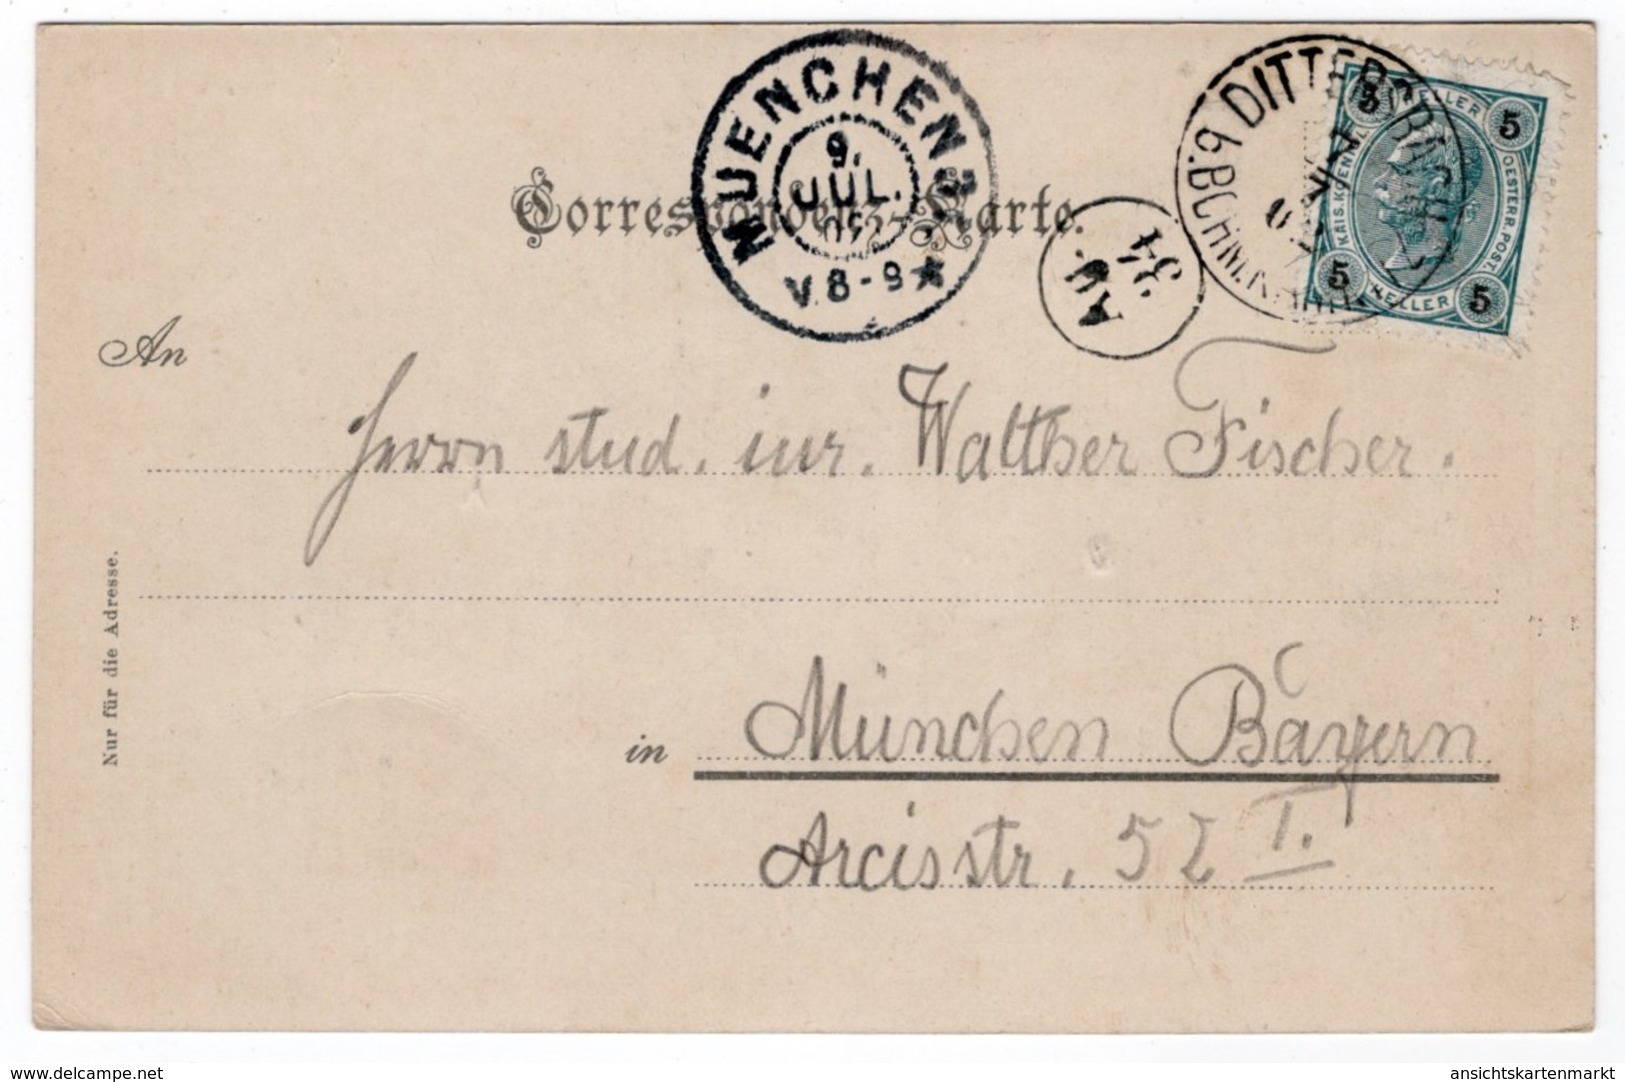 Correspondenz-Karte.
MUENCHEN 2
9.
JUL.
V. 8-9 ★
DITTERSBACH
b. BÖHM. KAMN.
Au.
34
5 HELLER 5
KAIS. KOENIGL.
OESTERR. POST.
5 HELLER 5
An
Herrn stud. iur. Walther Fischer.
Nur für die Adresse.
in München Bayern
Arcisstr. 52 I.
delcampe.net
ansichtskartenmarkt